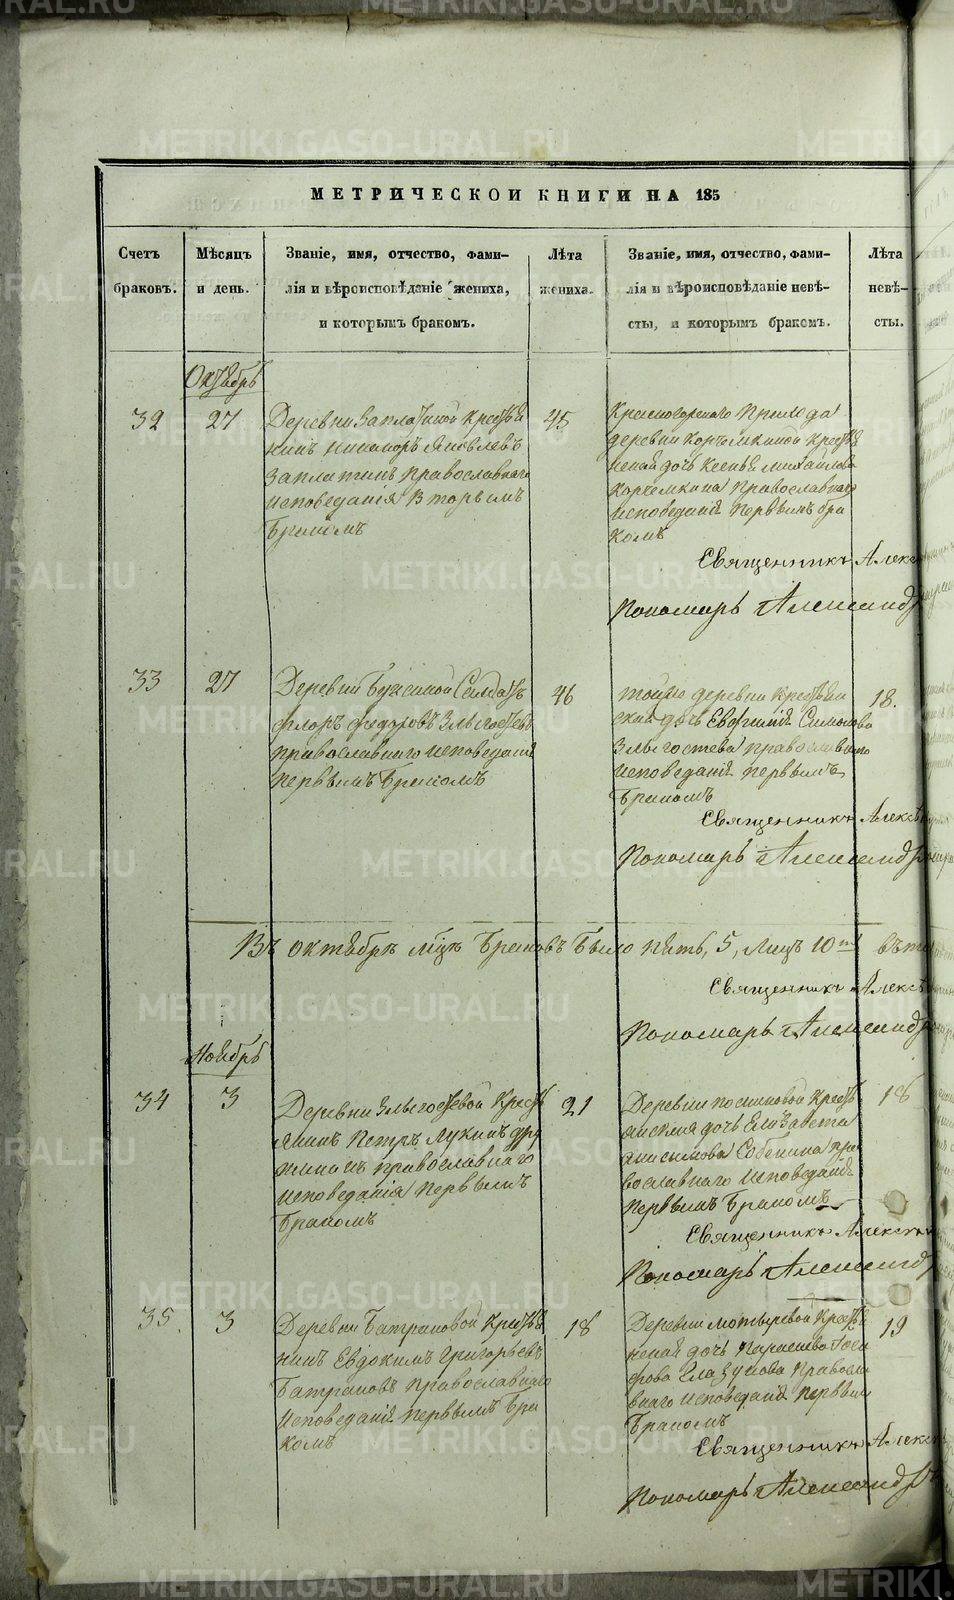 МЕТРИЧЕСКОЙ КНИГИ НА 185
Счетъ браковъ.
Мѣсяцъ и день.
Званіе, имя, отчество, фами-
лія и вѣроисповѣданіе жениха,
и которымъ бракомъ.
Лѣта
жениха.
Званіе, имя, отчество, фами-
лія и вѣроисповѣданіе невѣ-
сты, и которымъ бракомъ.
Лѣта
невѣ-
сты.
Октябрь
32
27
Деревни Заплатиной Крестья
нинъ Никаноръ Яковлевъ
Заплатинъ Православнаго
исповеданія Вторымъ
бракомъ
45
Красногорскаго Прихода
деревни Корчемкиной Крестья
нская дочь Ксенья Михайлова
Корчемкина Православнаго
исповеданія Первымъ бра
комъ
Священникъ Алекс
Пономарь Александр
33
27
Деревни Салдатъ
Флоръ Федоровъ Злыгостевъ
православнаго исповеданія
Первымъ бракомъ
46
тойже деревни Крестьян
ская дочь Евфгенія Симонова
Злыгостева православнаго
исповеданія первымъ
бракомъ
18.
Священникъ Алексѣ
Пономарь Александр
Въ октябрѣ мцѣ браковъ было пять, 5, лицъ 10ть въ
Священникъ Алексѣ
Пономарь Александр
Ноябрь
34
3
Деревни Злыгостевой Кресть
янинъ Петръ Лукинъ Дру
жининъ православнаго
исповеданія Первымъ
бракомъ
21
Деревни Кресть
янская дочь Елизавета
Анисимова Собенина пра
вославнаго исповеданія
Первымъ бракомъ
18
Священникъ Алексѣ
Пономарь Александ
35.
3
Деревни Батраковой Крестья
нинъ Евдокимъ Григорьевъ
Батраковъ Православнаго
исповеданія Первымъ бра
комъ
18
Деревни Мотыревой Крестья
нская дочь Параскева
Глазунова Правосла
внаго исповеданія Первым
бракомъ
19
Священникъ Алексѣ
Пономарь Александр
METRIKI.GASO-URAL.RU